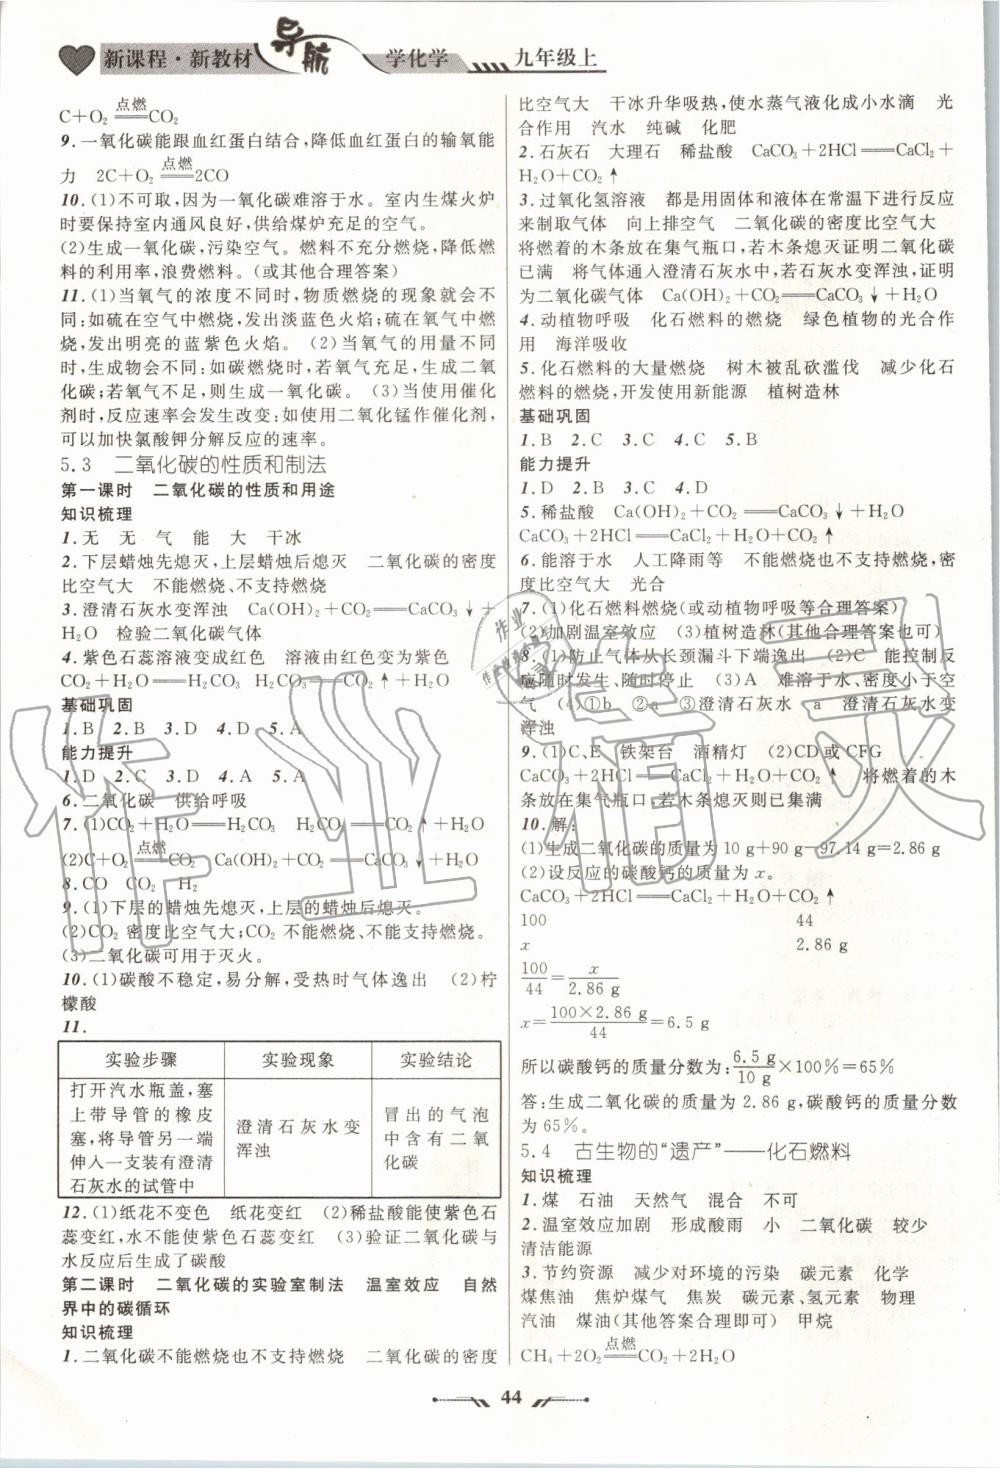 新课程·新教材 导航 学化学 九年级上
C+O₂ 点燃══ CO₂
9.一氧化碳能跟血红蛋白结合,降低血红蛋白的输氧能
力 2C+O₂ 点燃══ 2CO
10.(1)不可取,因为一氧化碳难溶于水。室内生煤火炉
时要保持室内通风良好,供给煤炉充足的空气。
(2)生成一氧化碳,污染空气。燃料不充分燃烧,降低燃
料的利用率,浪费燃料。(或其他合理答案)
11.(1)当氧气的浓度不同时,物质燃烧的现象就会不
同:如硫在空气中燃烧,发出淡蓝色火焰;硫在氧气中燃
烧,发出明亮的蓝紫色火焰。 (2)当氧气的用量不同
时,生成物不同:如碳燃烧时,若氧气充足,生成二氧
化碳;若氧气不足,则生成一氧化碳。 (3)当使用催化
剂时,反应速率会发生改变:如使用二氧化锰作催化剂,
可以加快氯酸钾分解反应的速率。
5.3 二氧化碳的性质和制法
第一课时 二氧化碳的性质和用途
知识梳理
1.无 无 气 能 大 干冰
2.下层蜡烛先熄灭,上层蜡烛后熄灭 二氧化碳的密度
比空气大 不能燃烧、不支持燃烧
3.澄清石灰水变浑浊 Ca(OH)₂+CO₂══CaCO₃↓+
H₂O 检验二氧化碳气体
4.紫色石蕊溶液变成红色 溶液由红色变为紫色
CO₂+H₂O══H₂CO₃ H₂CO₃══CO₂↑+H₂O
基础巩固
1.B 2.B 3.D 4.D 5.A
能力提升
1.D 2.C 3.D 4.A 5.A
6.二氧化碳 供给呼吸
7.(1)CO₂+H₂O══H₂CO₃ H₂CO₃══CO₂↑+H₂O
(2)C+O₂ 点燃══ CO₂ Ca(OH)₂+CO₂══CaCO₃↓+H₂O
8.CO CO₂ H₂
9.(1)下层的蜡烛先熄灭,上层的蜡烛后熄灭。
(2)CO₂密度比空气大;CO₂不能燃烧、不能支持燃烧。
(3)二氧化碳可用于灭火。
10.(1)碳酸不稳定,易分解,受热时气体逸出 (2)柠
檬酸
11.
实验步骤 实验现象 实验结论
打开汽水瓶盖,塞
上带导管的橡皮
塞,将导管另一端
伸入一支装有澄清
石灰水的试管中
澄清石灰水变
浑浊
冒出的气泡
中含有二氧
化碳
12.(1)纸花不变色 纸花变红 (2)稀盐酸能使紫色石
蕊变红,水不能使紫色石蕊变红 (3)验证二氧化碳与
水反应后生成了碳酸
第二课时 二氧化碳的实验室制法 温室效应 自然
界中的碳循环
知识梳理
1.二氧化碳不能燃烧也不支持燃烧 二氧化碳的密度
比空气大 干冰升华吸热,使水蒸气液化成小水滴 光
合作用 汽水 纯碱 化肥
2.石灰石 大理石 稀盐酸 CaCO₃+2HCl══CaCl₂+
H₂O+CO₂↑
3.过氧化氢溶液 都是用固体和液体在常温下进行反应
来制取气体 向上排空气 二氧化碳的密度比空气大
将燃着的木条放在集气瓶口,若木条熄灭证明二氧化碳
已满 将气体通入澄清石灰水中,若石灰水变浑浊,证明
为二氧化碳气体 Ca(OH)₂+CO₂══CaCO₃↓+H₂O
4.动植物呼吸 化石燃料的燃烧 绿色植物的光合作
用 海洋吸收
5.化石燃料的大量燃烧 树木被乱砍滥伐 减少化石
燃料的燃烧,开发使用新能源 植树造林
基础巩固
1.B 2.C 3.C 4.C 5.B
能力提升
1.D 2.D 3.C 4.D
5.稀盐酸 Ca(OH)₂+CO₂══CaCO₃↓+H₂O
CaCO₃+2HCl══CaCl₂+H₂O+CO₂↑
6.能溶于水 人工降雨等 不能燃烧也不支持燃烧,密
度比空气大 光合
7.(1)化石燃料燃烧(或动植物呼吸等合理答案)
(2)加剧温室效应 (3)植树造林(其他合理答案也可)
8.(1)防止气体从长颈漏斗下端逸出 (2)C 能控制反
应随时发生、随时停止 (3)A 难溶于水、密度小于空
气 (4)①b ②a ③澄清石灰水 a 澄清石灰水变
浑浊
9.(1)C、E 铁架台 酒精灯 (2)CD或CFG
CaCO₃+2HCl══CaCl₂+H₂O+CO₂↑ 将燃着的木
条放在集气瓶口,若木条熄灭则已集满
10.解:
(1)生成二氧化碳的质量为10 g+90 g-97.14 g=2.86 g
(2)设反应的碳酸钙的质量为x。
CaCO₃+2HCl══CaCl₂+H₂O+CO₂↑
100 44
x 2.86 g
100/44=x/2.86 g
x=100×2.86 g/44=6.5 g
所以碳酸钙的质量分数为:6.5 g/10 g×100%=65%
答:生成二氧化碳的质量为2.86 g,碳酸钙的质量分数
为65%。
5.4 古生物的“遗产”——化石燃料
知识梳理
1.煤 石油 天然气 混合 不可
2.温室效应加剧 形成酸雨 小 二氧化碳 较少
清洁能源
3.节约资源 减少对环境的污染 碳元素 化学
煤焦油 焦炉煤气 焦炭 碳元素、氢元素 物理
汽油 煤油(其他答案合理即可) 甲烷
CH₄+2O₂ 点燃══ CO₂+2H₂O
44
作业精灵